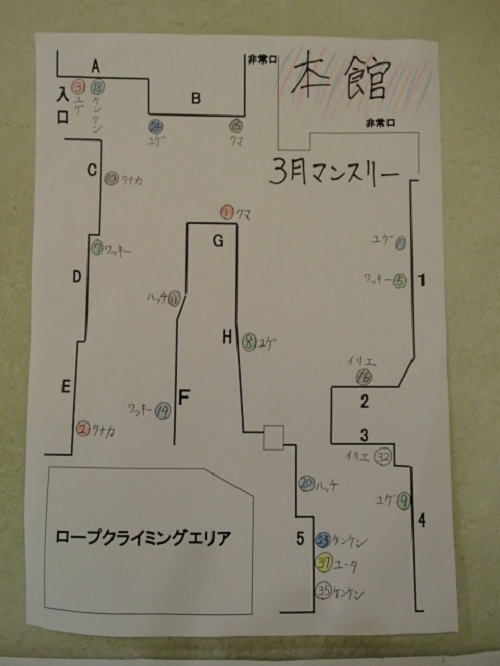 本館
非常口
非常口
3月マンスリー
入口
A
③ ⑱
ユゲ ケンケン
B
㉔ ⑮
ユゲ クマ
C
⑩ タナカ
⑦ ワッキー
D
E
② タナカ
① クマ
G
ハッチ ⑪
H
⑧ ユゲ
F
ワッキー ⑲
ユゲ
ワッキー ⑤
1
イリエ
⑯
2
3
イリエ ㉜
ユゲ ⑨
4
⑳ ハッチ
5
ケンケン
㊲ ユータ
㉟ ケンケン
ロープクライミングエリア